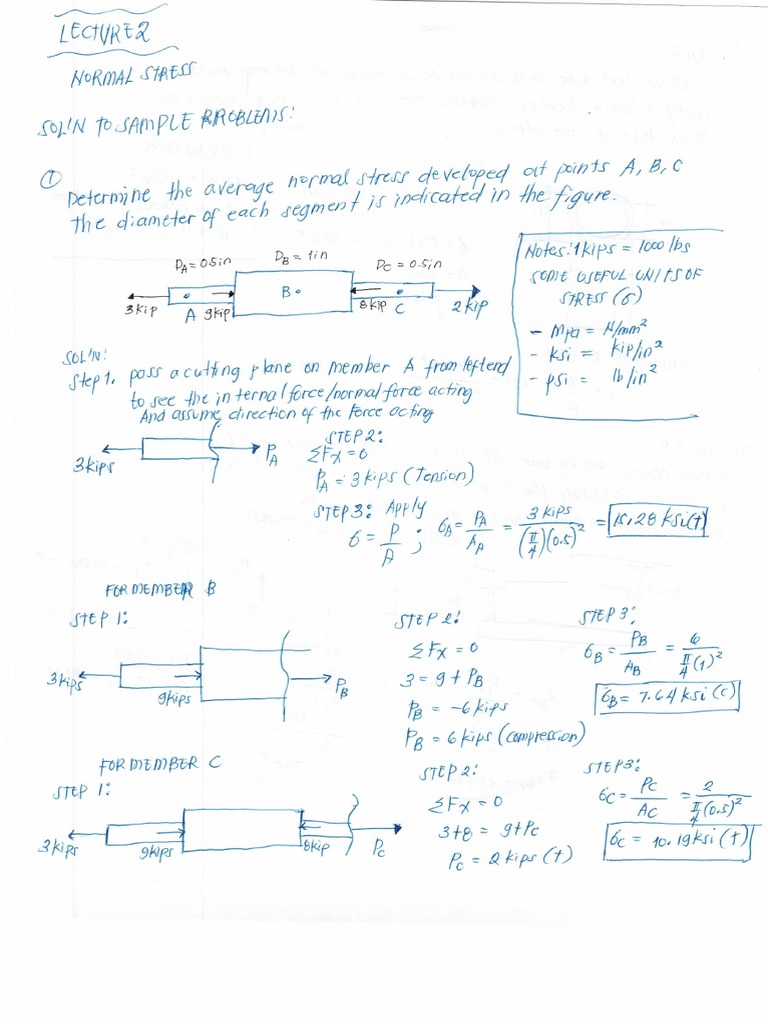 LECTURE 2
NORMAL STRESS
SOL'N TO SAMPLE PROBLEMS:
① Determine the average normal stress developed at points A, B, C
The diameter of each segment is indicated in the figure.
D_A = 0.5in D_B = 1in D_C = 0.5in
3kip A 9kip B 8kip C 2kip
Notes: 1 kips = 1000 lbs
SOME USEFUL UNITS OF
STRESS (σ)
- Mpa = N/mm²
- ksi = kip/in²
- psi = lb/in²
SOL'N:
Step 1. pass a cutting plane on member A from left end
to see the internal force/normal force acting
And assume direction of the force acting
3kips P_A
STEP 2:
ΣFx = 0
P_A = 3 kips (Tension)
STEP 3: Apply
σ = P/A ; σ_A = P_A/A_A = 3 kips/(π/4)(0.5)² = 15.28 ksi (t)
FOR MEMBER B
STEP 1:
3kips 9kips P_B
STEP 2:
ΣFx = 0
3 = 9 + P_B
P_B = -6 kips
P_B = 6 kips (compression)
STEP 3:
σ_B = P_B/A_B = 6/π/4(1)²
σ_B = 7.64 ksi (c)
FOR MEMBER C
STEP 1:
3kips 9kips 8kip P_C
STEP 2:
ΣFx = 0
3+8 = 9+P_C
P_C = 2 kips (t)
STEP 3:
σ_C = P_C/A_C = 2/π/4(0.5)²
σ_C = 10.19 ksi (t)